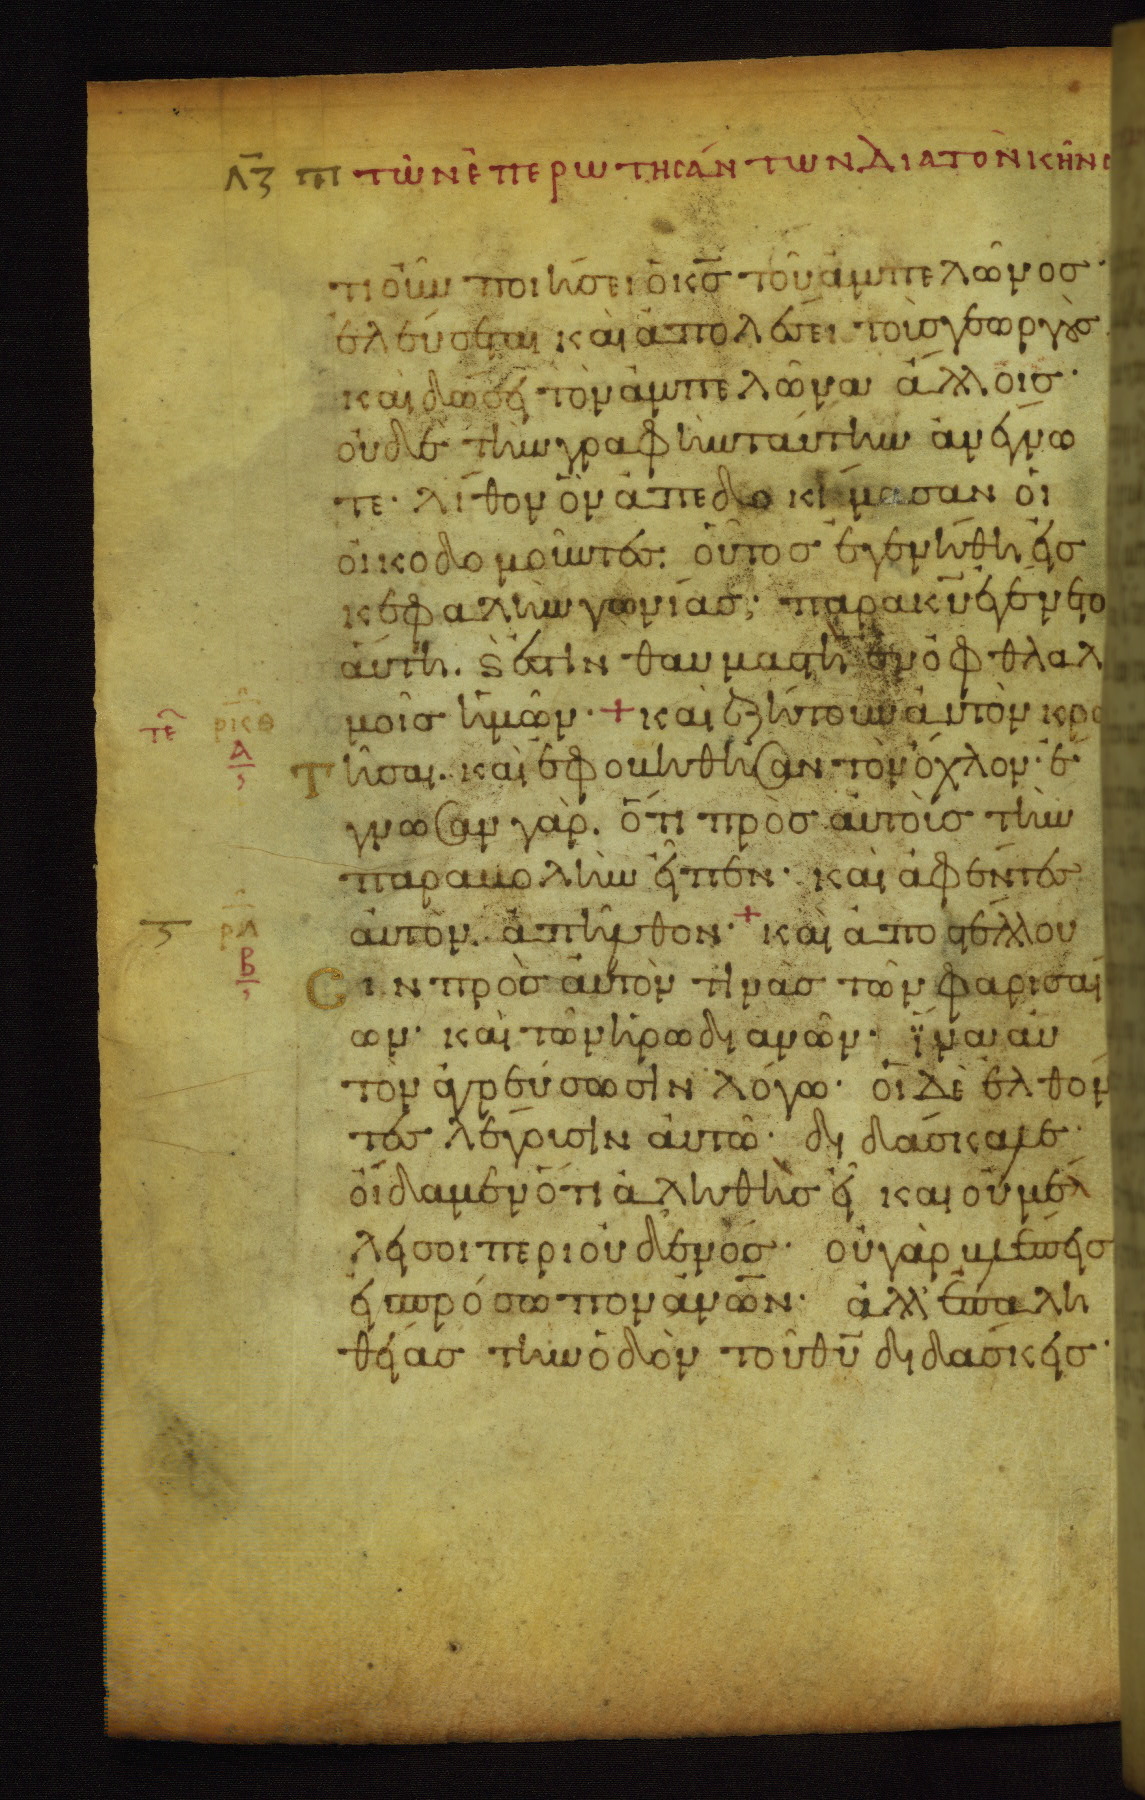 λζ πε τῶν ἐπερωτησάντων διὰ τὸν κῆνσ
τι οὖν ποιήσει ὁ κς τοῦ ἀμπελῶνος·
ἐλεύσεται καὶ ἀπολέσει τοὺς γεωργοὺς
καὶ δώσει τὸν ἀμπελῶνα ἄλλοις·
οὐδὲ τὴν γραφὴν ταύτην ἀνέγνω
τε· λίθον ὃν ἀπεδοκίμασαν οἱ
οἰκοδομοῦντες· οὗτος ἐγενήθη εἰς
κεφαλὴν γωνίας· παρὰ κυ ἐγένετο
αὕτη. κ ἔστιν θαυμαστὴ ἐν ὀφθλαλ
μοῖς ἡμῶν· + καὶ ἐζήτουν αὐτὸν κρα
τῆσαι. καὶ ἐφοβήθησαν τὸν ὄχλον· ἔ
γνωσαν γάρ. ὅτι πρὸς αὐτοὺς τὴν
παραβολὴν εἶπεν· καὶ ἀφέντες
αὐτὸν. ἀπῆλθον· + καὶ ἀποστέλλου
σιν πρὸς αὐτὸν τινὰς τῶν φαρισαί
ων· καὶ τῶν ἡρωδιανῶν· ἵνα αὐ
τὸν ἀγρεύσωσιν λόγω· οἱ δὲ ἐλθόν
τες λέγουσιν αὐτῶ· διδάσκαλε·
οἴδαμεν ὅτι ἀληθὴς εἶ καὶ οὐ μέλ
λει σοι περὶ οὐδενός· οὐ γὰρ βλέπεις
εἰς πρόσωπον ἀνων· ἀλλ' ἐπ' ἀλη
θείας τὴν ὁδὸν τοῦ θυ διδάσκεις·
τε ρκθ
α
ς ρλ
β